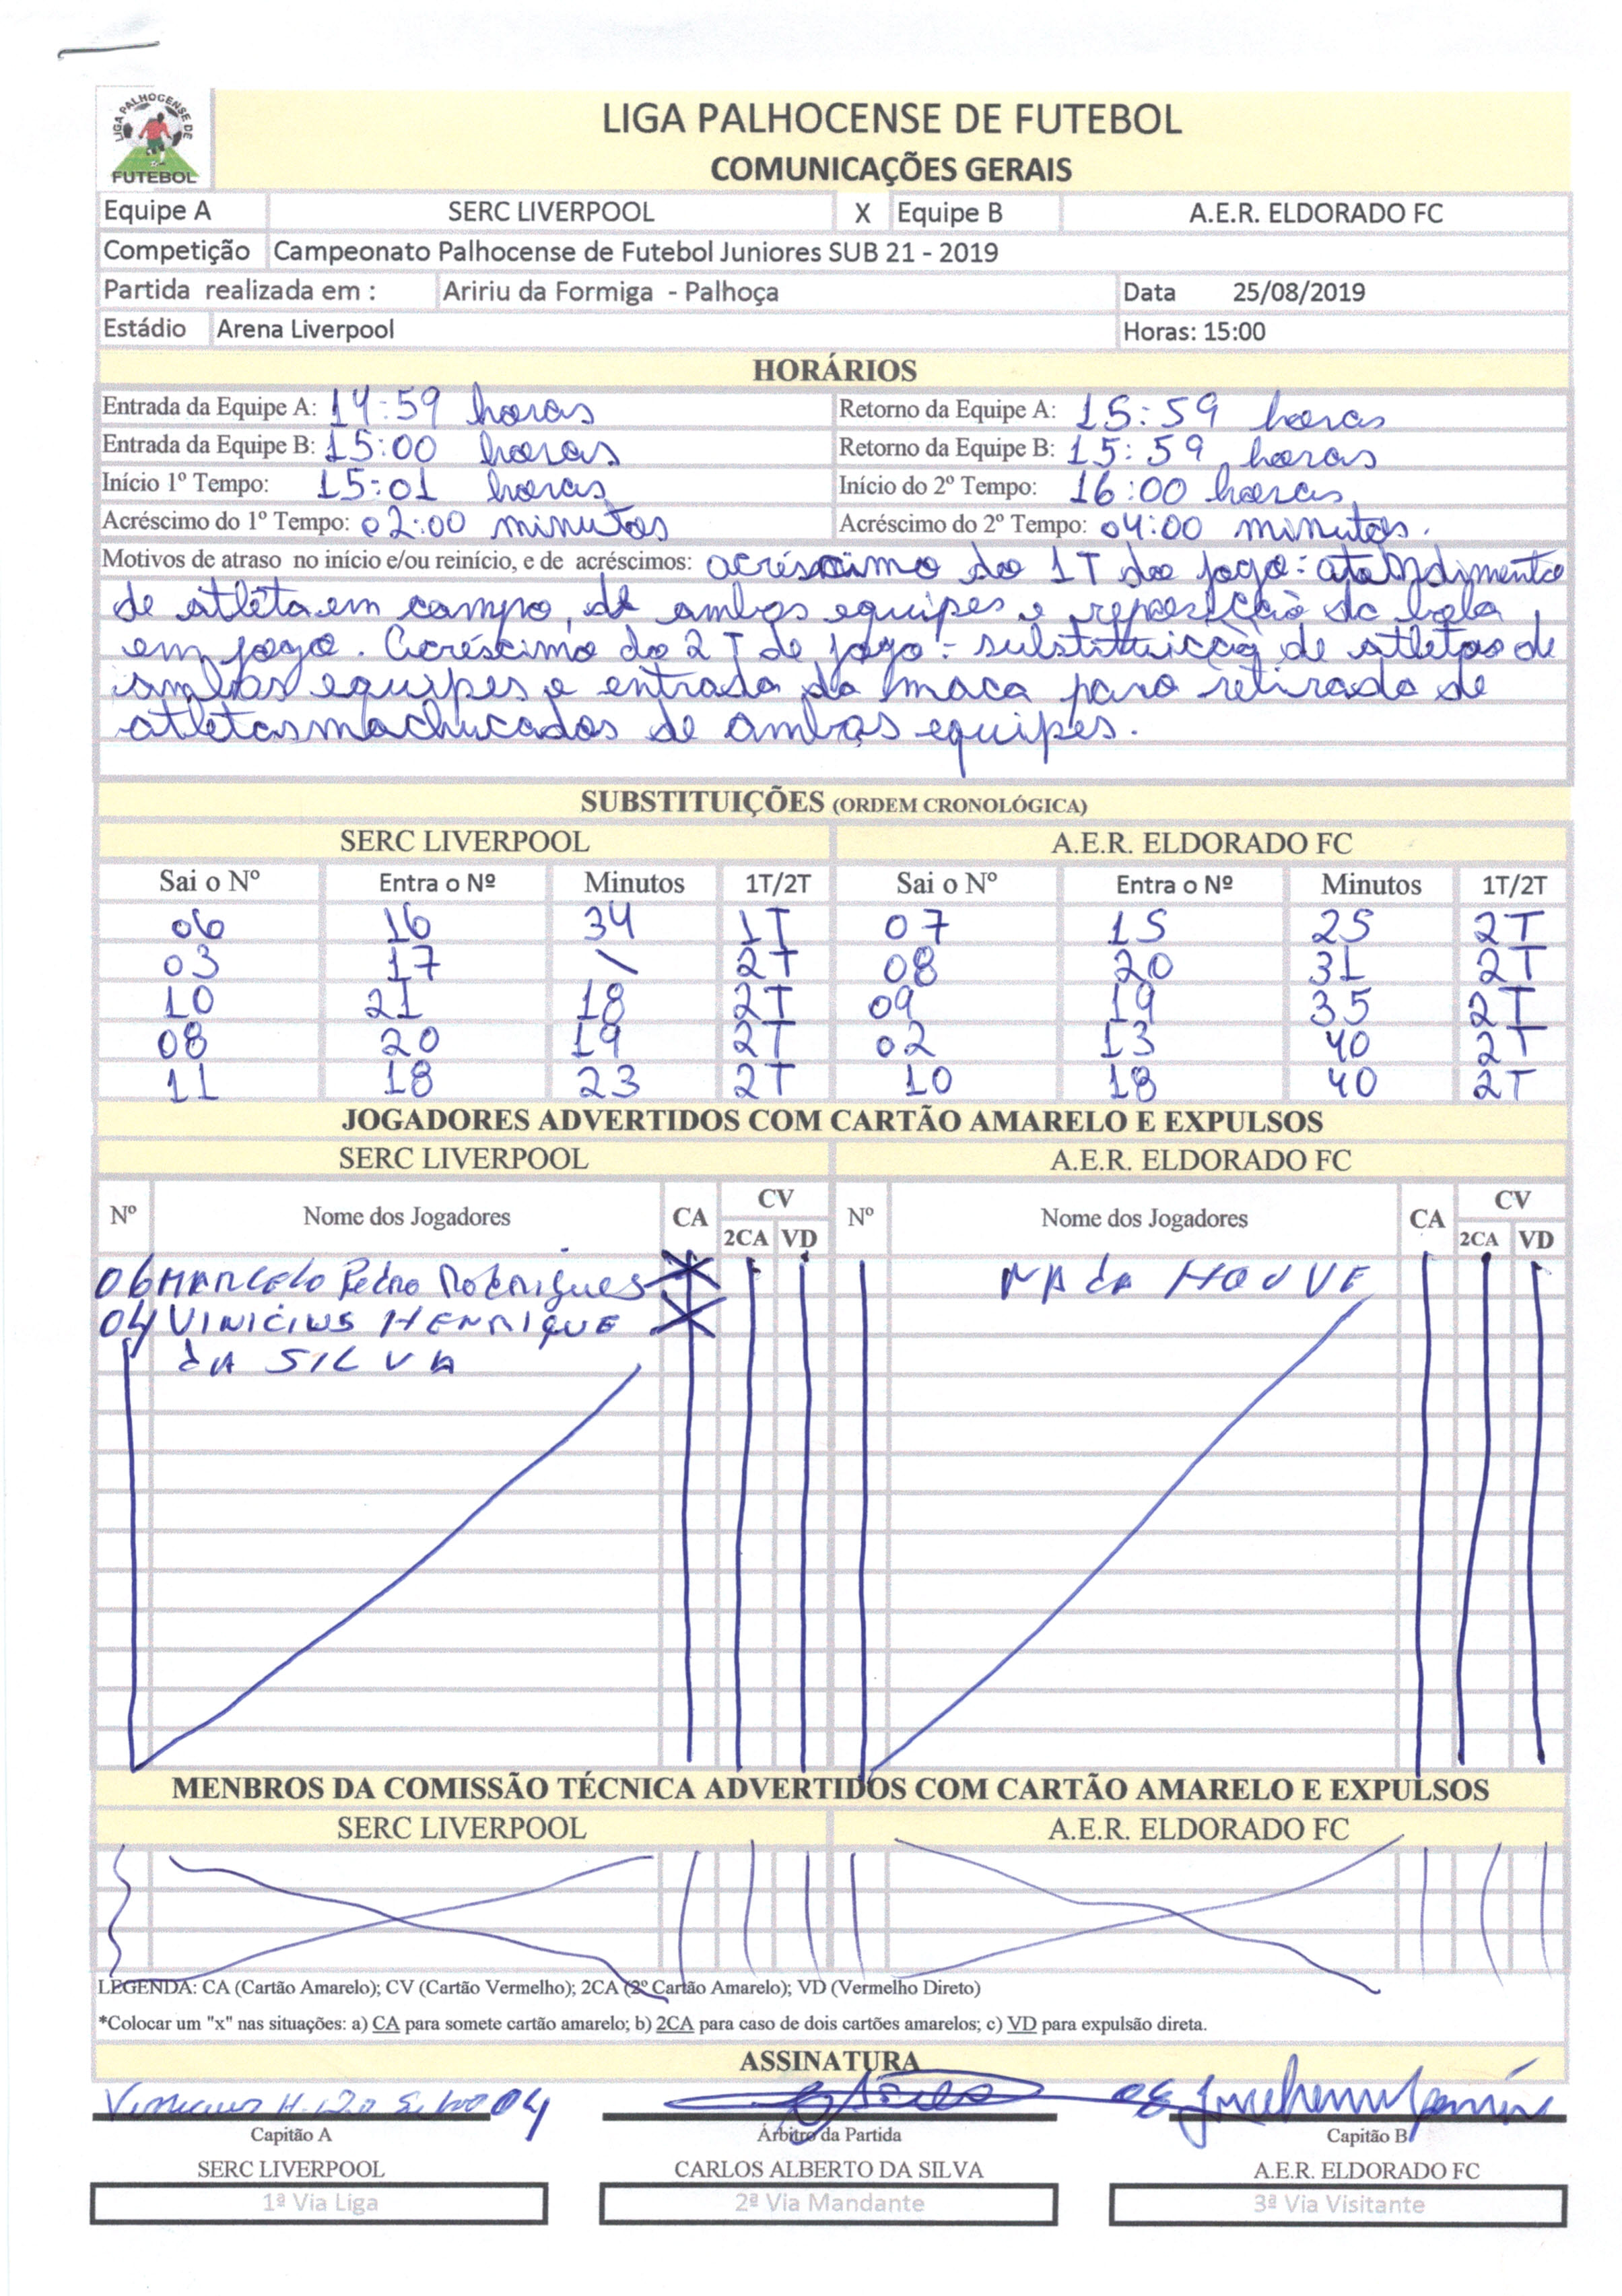 LIGA PALHOCENSE DE FUTEBOL
LIGA PALHOCENSE DE FUTEBOL
COMUNICAÇÕES GERAIS
Equipe A SERC LIVERPOOL X Equipe B A.E.R. ELDORADO FC
Competição Campeonato Palhocense de Futebol Juniores SUB 21 - 2019
Partida realizada em : Aririu da Formiga - Palhoça Data 25/08/2019
Estádio Arena Liverpool Horas: 15:00
HORÁRIOS
Entrada da Equipe A: 14:59 horas Retorno da Equipe A: 15:59 horas
Entrada da Equipe B: 15:00 horas Retorno da Equipe B: 15:59 horas
Início 1º Tempo: 15:01 horas Início do 2º Tempo: 16:00 horas
Acréscimo do 1º Tempo: 02:00 minutos Acréscimo do 2º Tempo: 04:00 minutos.
Motivos de atraso no início e/ou reinício, e de acréscimos: acréscimo do 1T do jogo: atendimento
de atleta em campo, de ambas equipes e reposição da bola
em jogo. Acréscimo do 2T de jogo: substituição de atletas de
ambas equipes e entrada da maca para retirada de
atletas machucados de ambas equipes.
SUBSTITUIÇÕES (ORDEM CRONOLÓGICA)
SERC LIVERPOOL A.E.R. ELDORADO FC
Sai o Nº Entra o Nº Minutos 1T/2T Sai o Nº Entra o Nº Minutos 1T/2T
06 16 34 1T 07 15 25 2T
03 17 \ 2T 08 20 31 2T
10 21 18 2T 09 19 35 2T
08 20 19 2T 02 13 40 2T
11 18 23 2T 10 18 40 2T
JOGADORES ADVERTIDOS COM CARTÃO AMARELO E EXPULSOS
SERC LIVERPOOL A.E.R. ELDORADO FC
Nº Nome dos Jogadores CA CV Nº Nome dos Jogadores CA CV
2CA VD 2CA VD
06 MARCELO Pedro Rodrigues X NADA HOUVE
04 VINICIUS HENRIQUE X
dA SILVA
MENBROS DA COMISSÃO TÉCNICA ADVERTIDOS COM CARTÃO AMARELO E EXPULSOS
SERC LIVERPOOL A.E.R. ELDORADO FC
LEGENDA: CA (Cartão Amarelo); CV (Cartão Vermelho); 2CA (2º Cartão Amarelo); VD (Vermelho Direto)
*Colocar um "x" nas situações: a) CA para somete cartão amarelo; b) 2CA para caso de dois cartões amarelos; c) VD para expulsão direta.
ASSINATURA
Vinicius H. da Silva 04
Capitão A Árbitro da Partida Capitão B
SERC LIVERPOOL CARLOS ALBERTO DA SILVA A.E.R. ELDORADO FC
1ª Via Liga 2ª Via Mandante 3ª Via Visitante